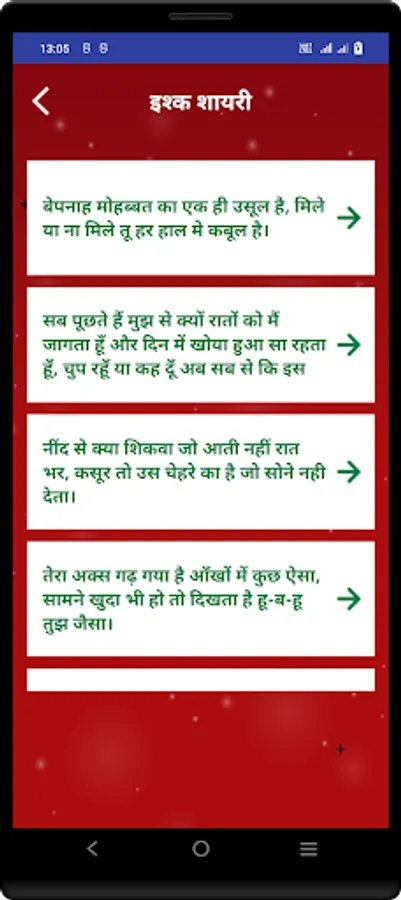 13:05
इश्क शायरी
बेपनाह मोहब्बत का एक ही उसूल है, मिले
या ना मिले तू हर हाल मे कबूल है।
सब पूछते हैं मुझ से क्यों रातों को मैं
जागता हूँ और दिन में खोया हुआ सा रहता
हूँ, चुप रहूँ या कह दूँ अब सब से कि इस
नींद से क्या शिकवा जो आती नहीं रात
भर, कसूर तो उस चेहरे का है जो सोने नही
देता।
तेरा अक्स गढ़ गया है आँखों में कुछ ऐसा,
सामने खुदा भी हो तो दिखता है हू-ब-हू
तुझ जैसा।